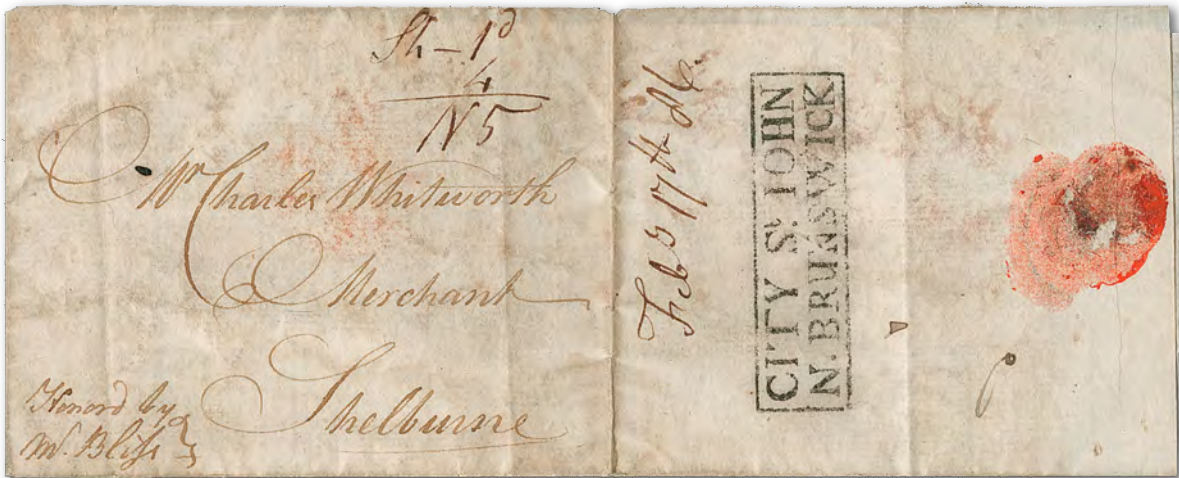 Sh – 1d
4
N 5
Mr Charles Whitworth
Merchant
Shelburne
Honord by
Mr. Bliss
Feb 17th
CITY St. JOHN
N. BRUNSWICK